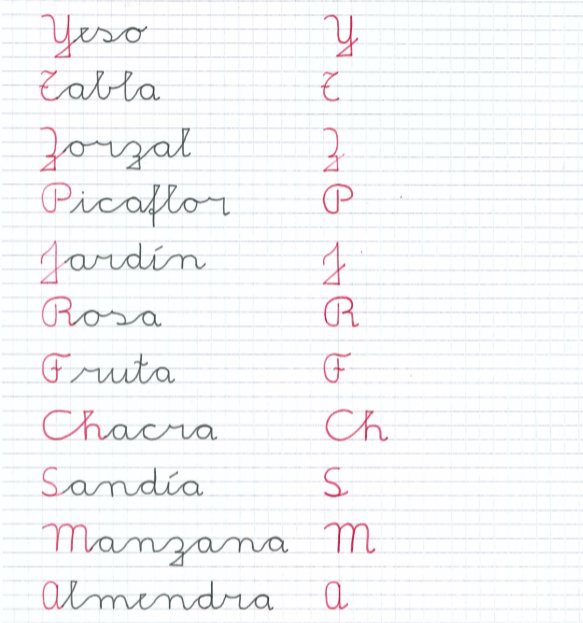 Yeso Y
Tabla T
Zorzal Z
Picaflor P
Jardín J
Rosa R
Fruta F
Chacra Ch
Sandía S
Manzana M
Almendra A